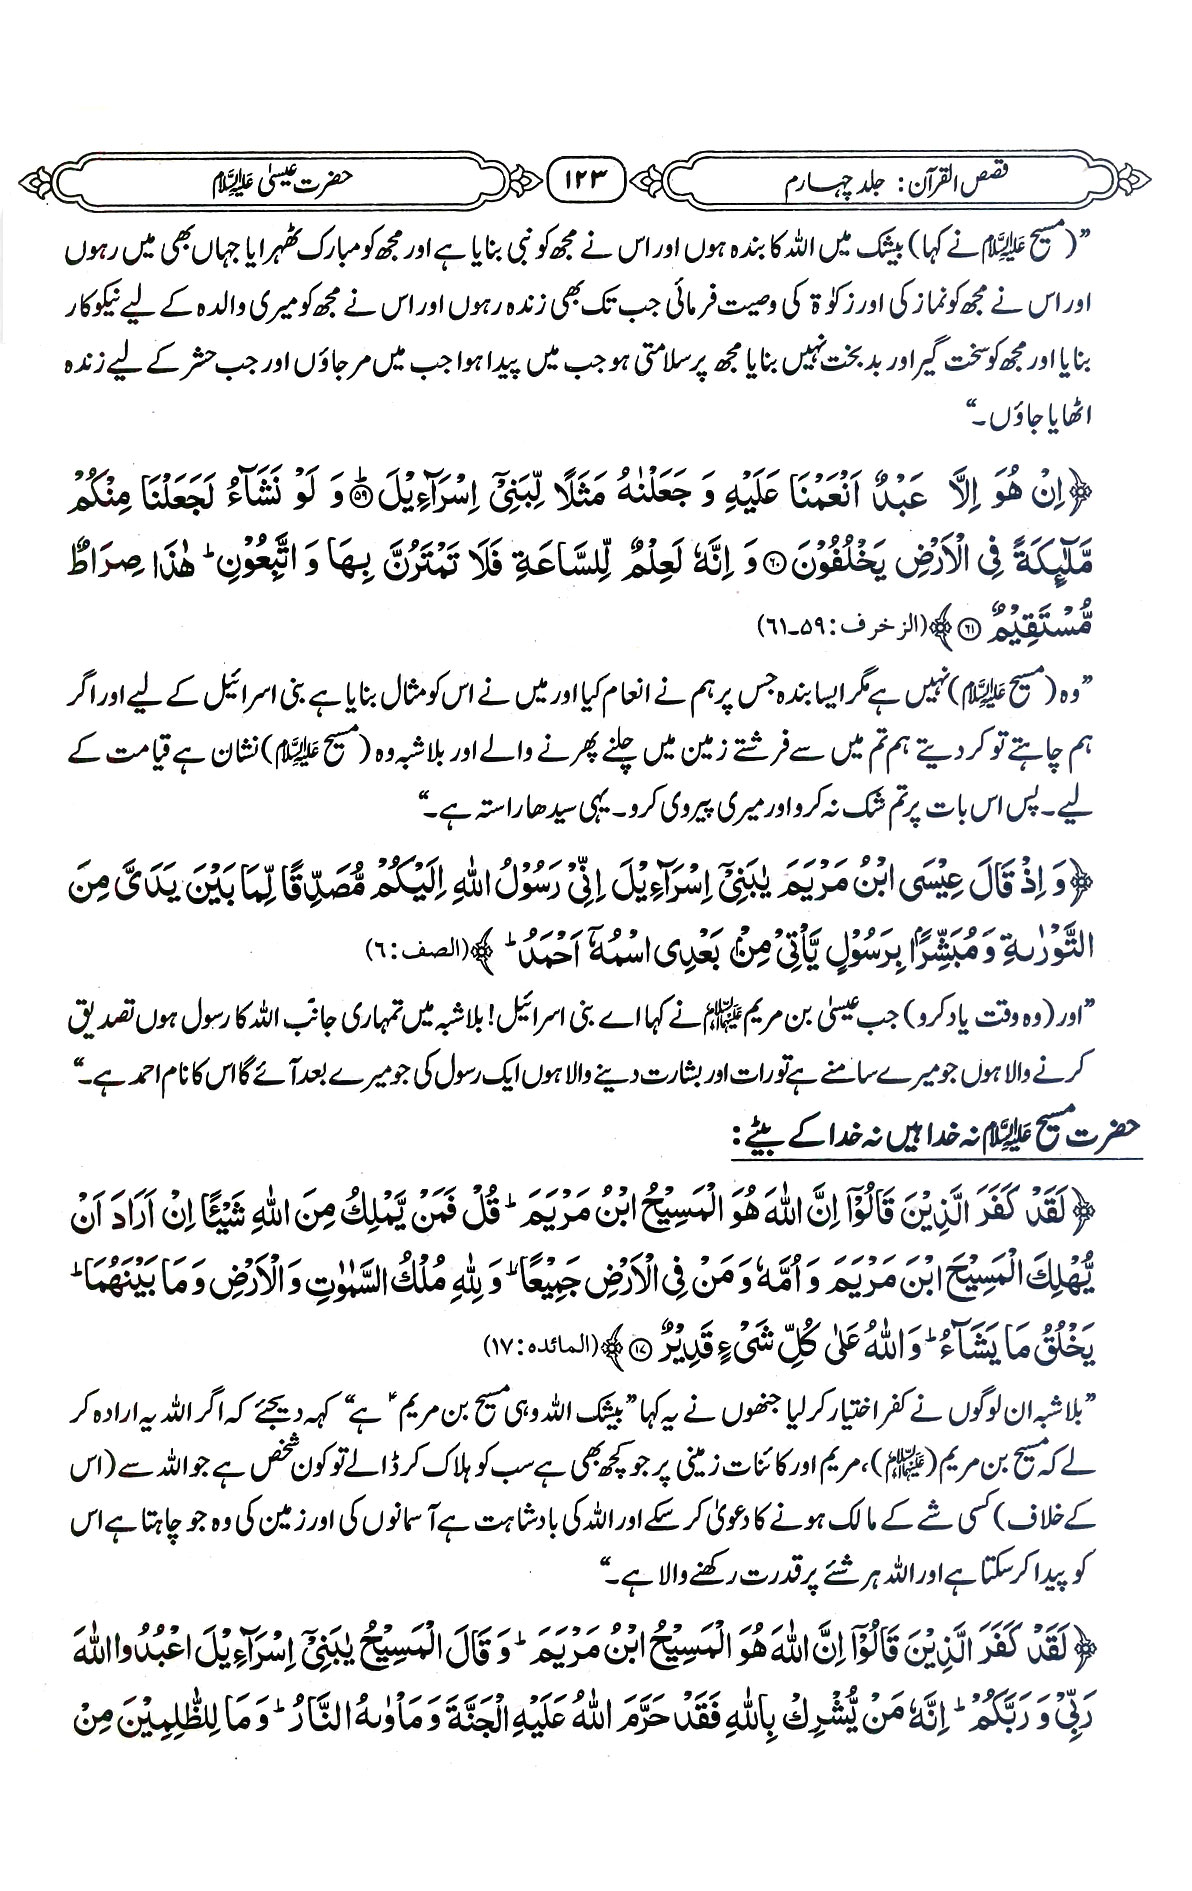 قصص القرآن: جلد چہارم
۱۲۳
حضرت عیسیٰ علیہ السلام
”(مسیح علیہ السلام نے کہا) بیشک میں اللہ کا بندہ ہوں اور اس نے مجھ کو نبی بنایا ہے اور مجھ کو مبارک ٹھہرایا جہاں بھی میں رہوں
اور اس نے مجھ کو نماز کی اور زکوٰۃ کی وصیت فرمائی جب تک بھی زندہ رہوں اور اس نے مجھ کو میری والدہ کے لیے نیکوکار
بنایا اور مجھ کو سخت گیر اور بدبخت نہیں بنایا مجھ پر سلامتی ہو جب میں پیدا ہوا جب میں مر جاؤں اور جب حشر کے لیے زندہ
اٹھایا جاؤں۔“
﴿اِنْ هُوَ اِلَّا عَبْدٌ اَنْعَمْنَا عَلَيْهِ وَ جَعَلْنٰهُ مَثَلًا لِّبَنِيْۤ اِسْرَآءِيْلَؕ۝۵۹ وَ لَوْ نَشَآءُ لَجَعَلْنَا مِنْكُمْ
مَّلٰٓىِٕكَةً فِي الْاَرْضِ يَخْلُفُوْنَ۝۶۰ وَ اِنَّهٗ لَعِلْمٌ لِّلسَّاعَةِ فَلَا تَمْتَرُنَّ بِهَا وَ اتَّبِعُوْنِؕ هٰذَا صِرَاطٌ
مُّسْتَقِيْمٌ۝۶۱﴾ (الزخرف: ۵۹۔۶۱)
”وہ (مسیح علیہ السلام) نہیں ہے مگر ایسا بندہ جس پر ہم نے انعام کیا اور میں نے اس کو مثال بنایا ہے بنی اسرائیل کے لیے اور اگر
ہم چاہتے تو کر دیتے ہم تم میں سے فرشتے زمین میں چلنے پھرنے والے اور بلاشبہ وہ (مسیح علیہ السلام) نشان ہے قیامت کے
لیے۔ پس اس بات پر تم شک نہ کرو اور میری پیروی کرو۔ یہی سیدھا راستہ ہے۔“
﴿وَ اِذْ قَالَ عِيْسَى ابْنُ مَرْيَمَ يٰبَنِيْۤ اِسْرَآءِيْلَ اِنِّيْ رَسُوْلُ اللّٰهِ اِلَيْكُمْ مُّصَدِّقًا لِّمَا بَيْنَ يَدَيَّ مِنَ
التَّوْرٰىةِ وَ مُبَشِّرًۢا بِرَسُوْلٍ يَّاْتِيْ مِنْۢ بَعْدِي اسْمُهٗۤ اَحْمَدُؕ﴾ (الصف: ۶)
”اور (وہ وقت یاد کرو) جب عیسیٰ بن مریم علیہما السلام نے کہا اے بنی اسرائیل! بلاشبہ میں تمہاری جانب اللہ کا رسول ہوں تصدیق
کرنے والا ہوں جو میرے سامنے ہے تورات اور بشارت دینے والا ہوں ایک رسول کی جو میرے بعد آئے گا اس کا نام احمد ہے۔“
حضرت مسیح علیہ السلام نہ خدا ہیں نہ خدا کے بیٹے:
﴿لَقَدْ كَفَرَ الَّذِيْنَ قَالُوْۤا اِنَّ اللّٰهَ هُوَ الْمَسِيْحُ ابْنُ مَرْيَمَؕ قُلْ فَمَنْ يَّمْلِكُ مِنَ اللّٰهِ شَيْـًٔا اِنْ اَرَادَ اَنْ
يُّهْلِكَ الْمَسِيْحَ ابْنَ مَرْيَمَ وَ اُمَّهٗ وَ مَنْ فِي الْاَرْضِ جَمِيْعًاؕ وَ لِلّٰهِ مُلْكُ السَّمٰوٰتِ وَ الْاَرْضِ وَ مَا بَيْنَهُمَاؕ
يَخْلُقُ مَا يَشَآءُؕ وَ اللّٰهُ عَلٰى كُلِّ شَيْءٍ قَدِيْرٌ۝۱۷﴾ (المائدہ: ۱۷)
”بلاشبہ ان لوگوں نے کفر اختیار کر لیا جنھوں نے یہ کہا ”بیشک اللہ وہی مسیح بن مریمؑ ہے“ کہہ دیجئے کہ اگر اللہ یہ ارادہ کر
لے کہ مسیح بن مریم (علیہما السلام)، مریم اور کائنات زمینی پر جو کچھ بھی ہے سب کو ہلاک کر ڈالے تو کون شخص ہے جو اللہ سے (اس
کے خلاف) کسی شے کے مالک ہونے کا دعویٰ کر سکے اور اللہ کی بادشاہت ہے آسمانوں کی اور زمین کی وہ جو چاہتا ہے اس
کو پیدا کر سکتا ہے اور اللہ ہر شئے پر قدرت رکھنے والا ہے۔“
﴿لَقَدْ كَفَرَ الَّذِيْنَ قَالُوْۤا اِنَّ اللّٰهَ هُوَ الْمَسِيْحُ ابْنُ مَرْيَمَؕ وَ قَالَ الْمَسِيْحُ يٰبَنِيْۤ اِسْرَآءِيْلَ اعْبُدُوا اللّٰهَ
رَبِّيْ وَ رَبَّكُمْؕ اِنَّهٗ مَنْ يُّشْرِكْ بِاللّٰهِ فَقَدْ حَرَّمَ اللّٰهُ عَلَيْهِ الْجَنَّةَ وَ مَاْوٰىهُ النَّارُؕ وَ مَا لِلظّٰلِمِيْنَ مِنْ